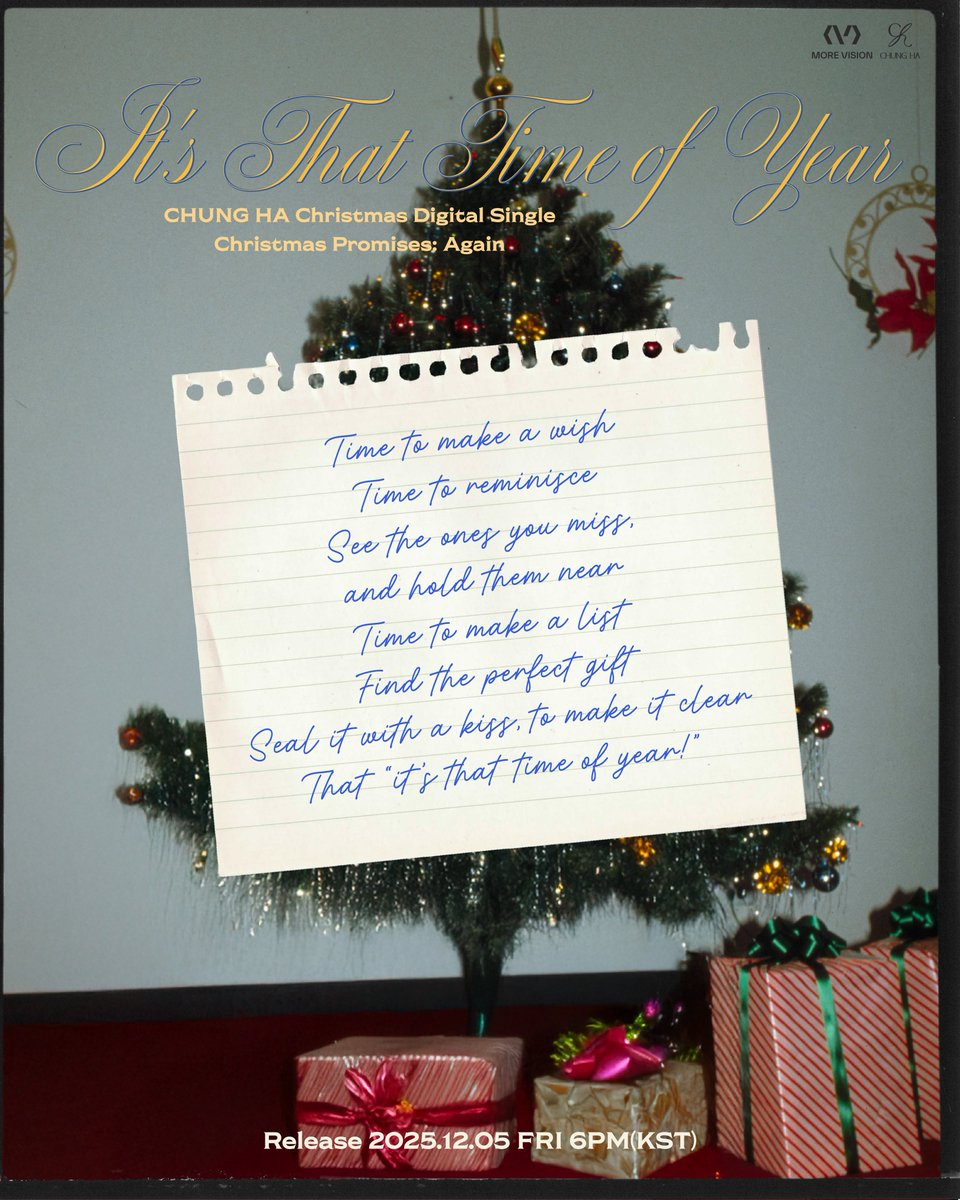 MORE VISION
CHUNG HA
It's That Time of Year
CHUNG HA Christmas Digital Single
Christmas Promises; Again
Time to make a wish
Time to reminisce
See the ones you miss,
and hold them near
Time to make a list
Find the perfect gift
Seal it with a kiss, to make it clear
That “it's that time of year!”
Release 2025.12.05 FRI 6PM(KST)